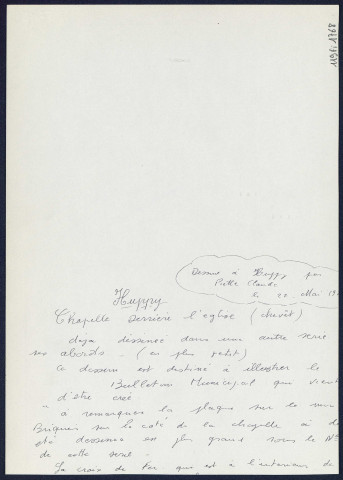 119FI768
Dessiné à Huppy par
Claude
le 20 Mai
Huppy
Chapelle derrière l'église (chevet)
deja dessinée dans une autre serie
ses abords. (en plus petit)
Ce dessin est destiné à illustrer le
Bulletin Municipal qui vient
d'être créé
a remarquer la plaque sur le mur
Briques sur le coté de la chapelle à
été dessinée en plus grand sous le N°
de cette serie
La croix de fer qui est à l'interieur de